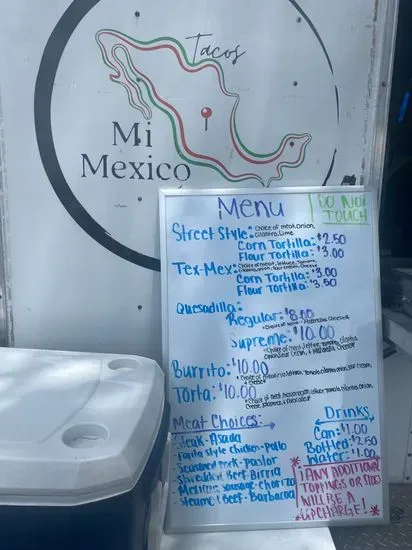 Tacos
Mi
Mexico
Menu
DO NOT
TOUCH
Street Style: Choice of meat, onion,
cilantro, lime
Corn Tortilla: $2.50
Flour Tortilla: $3.00
Tex-Mex: Choice of meat, lettuce, tomato,
cilantro, onion, sour cream, cheese
Corn Tortilla: $3.00
Flour Tortilla: $3.50
Quesadilla:
Regular: $8.00
Choice of meat Mozzarella Cheese
Supreme: $10.00
Choice of meat, lettuce, tomato, cilantro
onion, sour cream, & mozzarella cheese
Burrito: $10.00
lettuce, tomato, cilantro, onion, sour cream,
& cheese
Torta: $10.00
Choice of meat, lettuce, tomato, cilantro, onion,
& avocado
Meat Choices:
Steak - Asada
Fajita style chicken - pollo
Seasoned Pork - pastor
Shredded Beef - Birria
Mexican Sausage - Chorizo
Steamed Beef - Barbacoa
Drinks
Can: $1.00
Bottled: $2.50
Water: $1.00
! ANY ADDITIONAL
TOPPINGS OR SIDES
WILL BE A
UPCHARGE!